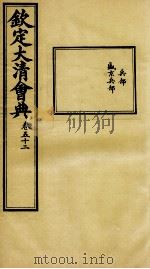 欽定大清會典 卷五十三
兵部
盛京兵部